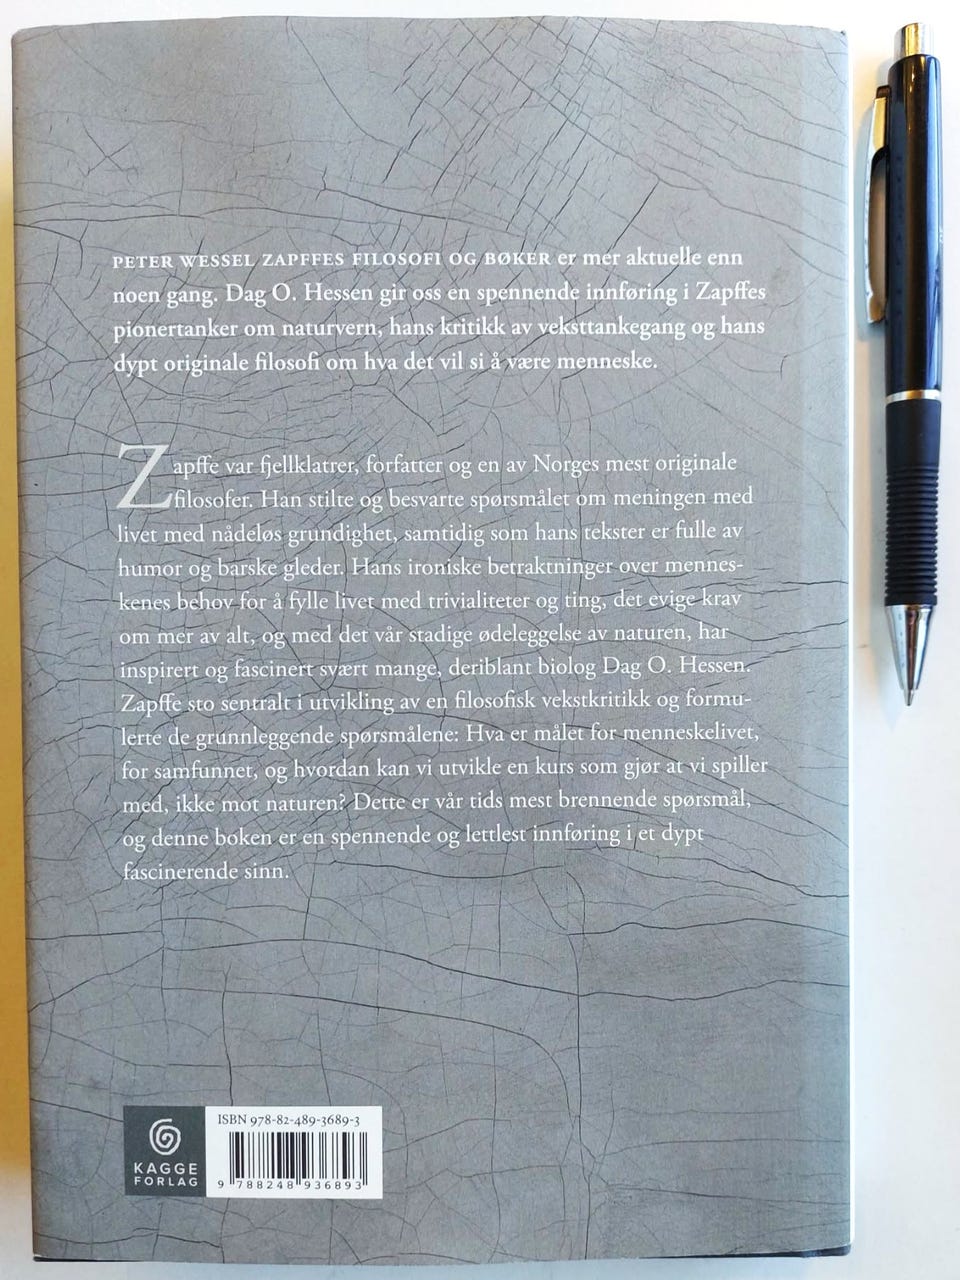 PETER WESSEL ZAPFFES FILOSOFI OG BØKER er mer aktuelle enn
noen gang. Dag O. Hessen gir oss en spennende innføring i Zapffes
pionertanker om naturvern, hans kritikk av veksttankegang og hans
dypt originale filosofi om hva det vil si å være menneske.
Zapffe var fjellklatrer, forfatter og en av Norges mest originale
filosofer. Han stilte og besvarte spørsmålet om meningen med
livet med nådeløs grundighet, samtidig som hans tekster er fulle av
humor og barske gleder. Hans ironiske betraktninger over mennes-
kenes behov for å fylle livet med trivialiteter og ting, det evige krav
om mer av alt, og med det vår stadige ødeleggelse av naturen, har
inspirert og fascinert svært mange, deriblant biolog Dag O. Hessen.
Zapffe sto sentralt i utvikling av en filosofisk vekstkritikk og formu-
lerte de grunnleggende spørsmålene: Hva er målet for menneskelivet,
for samfunnet, og hvordan kan vi utvikle en kurs som gjør at vi spiller
med, ikke mot naturen? Dette er vår tids mest brennende spørsmål,
og denne boken er en spennende og lettlest innføring i et dypt
fascinerende sinn.
KAGGE
FORLAG
ISBN 978-82-489-3689-3
9 788248 936893